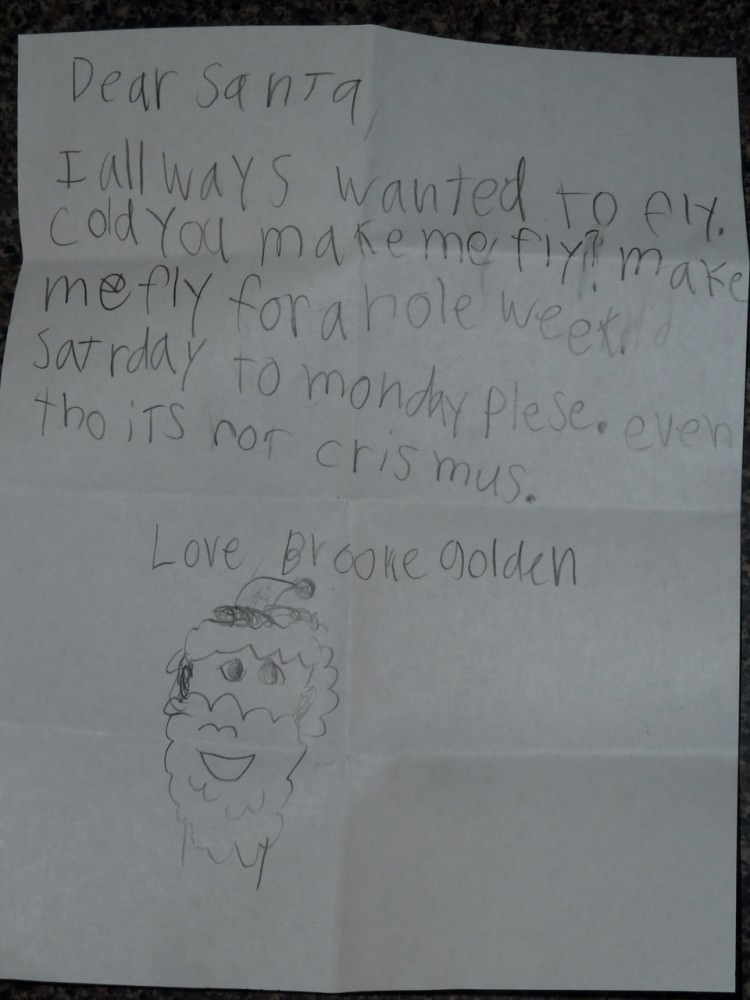 Dear Santa,
I all ways wanted to fly.
Cold You make me fly? make
me fly for a hole week.
Satrday to monday plese. even
tho iTS not crismus.
Love Brooke golden